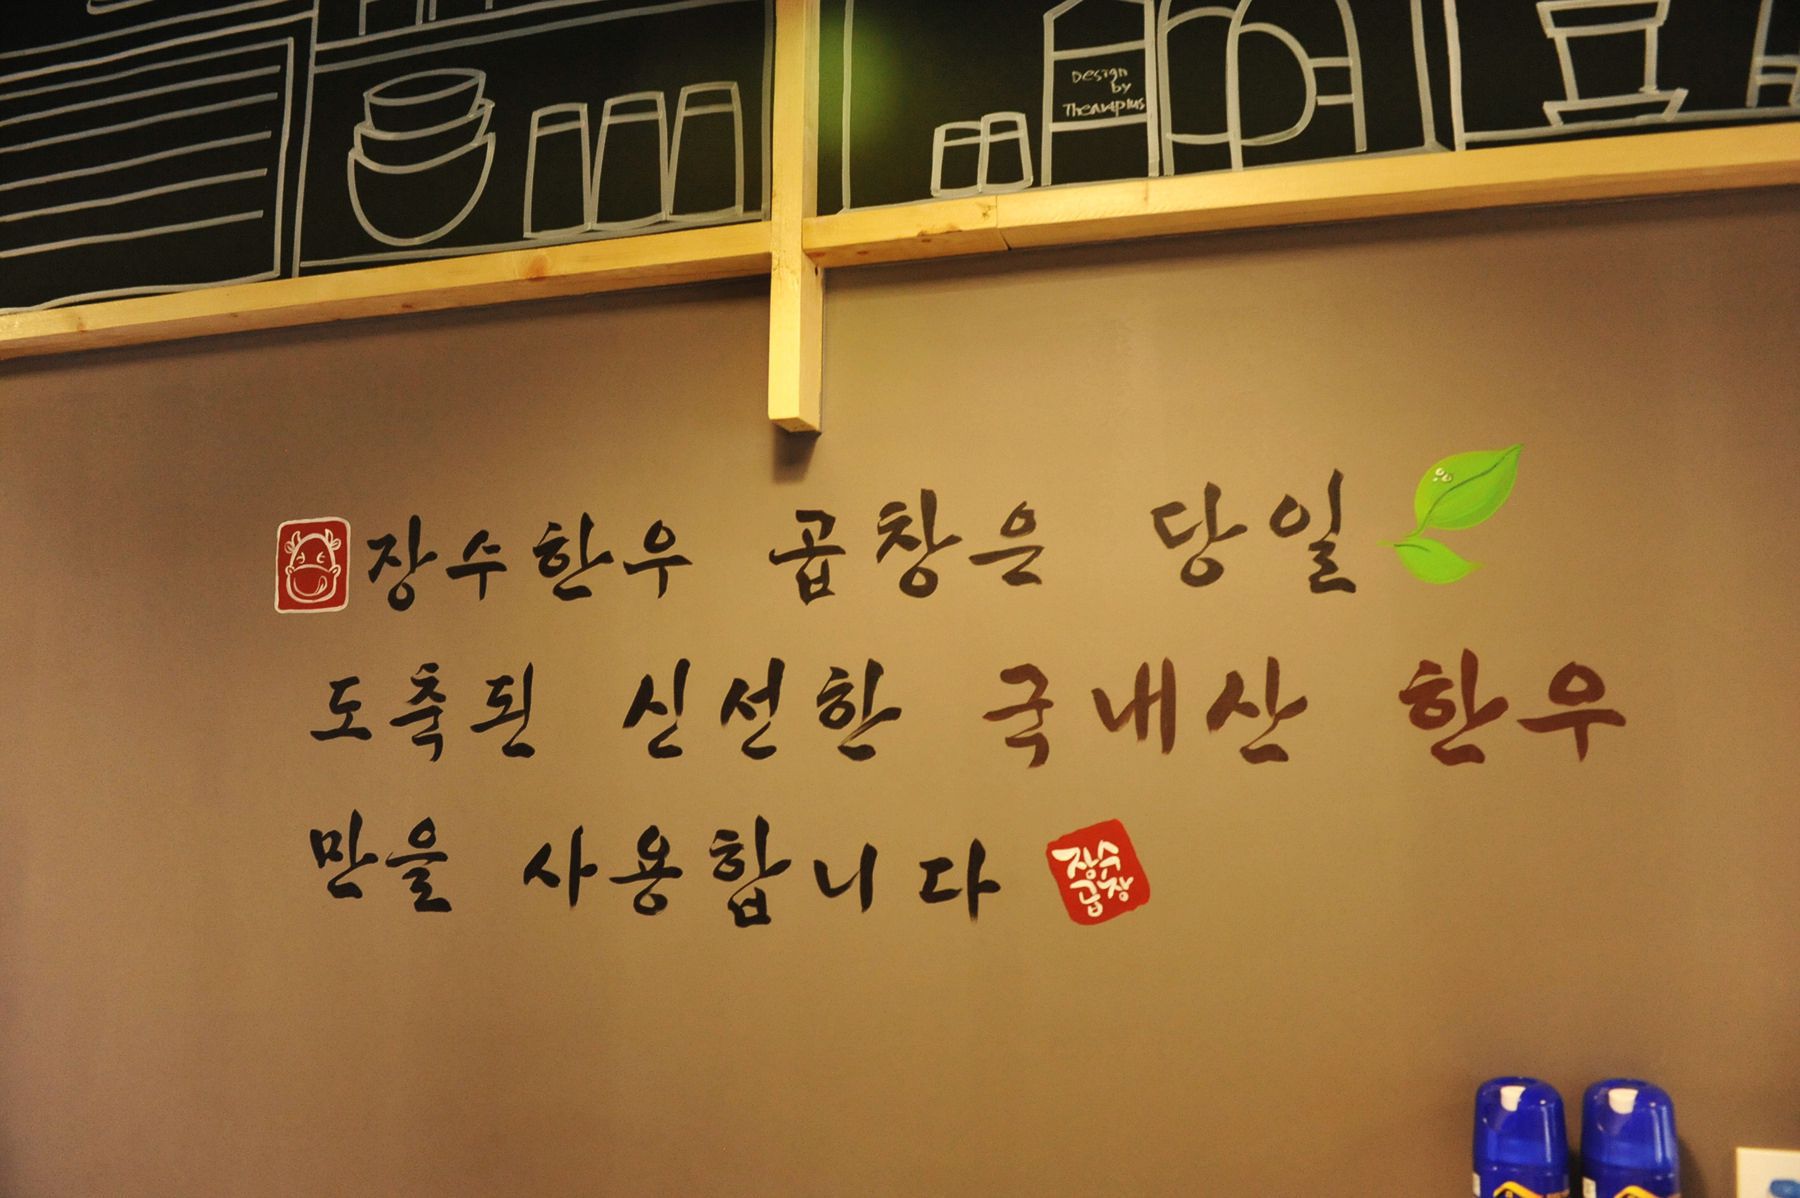 Design
by
Theaceplus
장수한우 곱창은 당일
도축된 신선한 국내산 한우
만을 사용합니다
장수
곱장